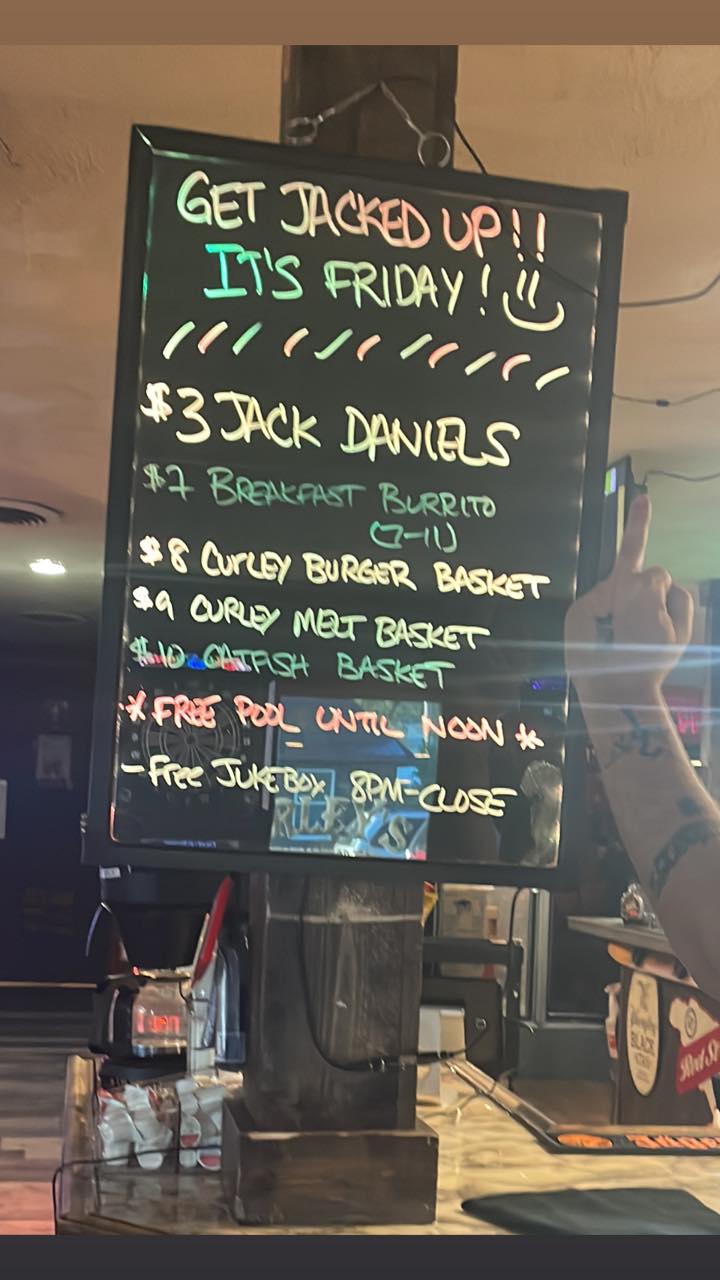 GET JACKED UP!!
IT'S FRIDAY!
$3 JACK DANIELS
$7 BREAKFAST BURRITO
(7-11)
$8 CURLEY BURGER BASKET
$9 CURLEY MELT BASKET
$10 CATFISH BASKET
* FREE POOL UNTIL NOON *
- FREE JUKEBOX 8PM-CLOSE
BLACK